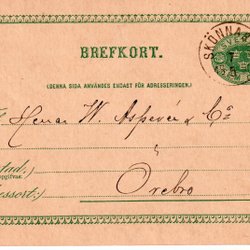 BREFKORT.
(DENNA SIDA ANVÄNDES ENDAST FÖR ADRESSERINGEN.)
SKÖNNA
Herrar W. Aspevér & Co
tad.)
Örebro
ssort:)